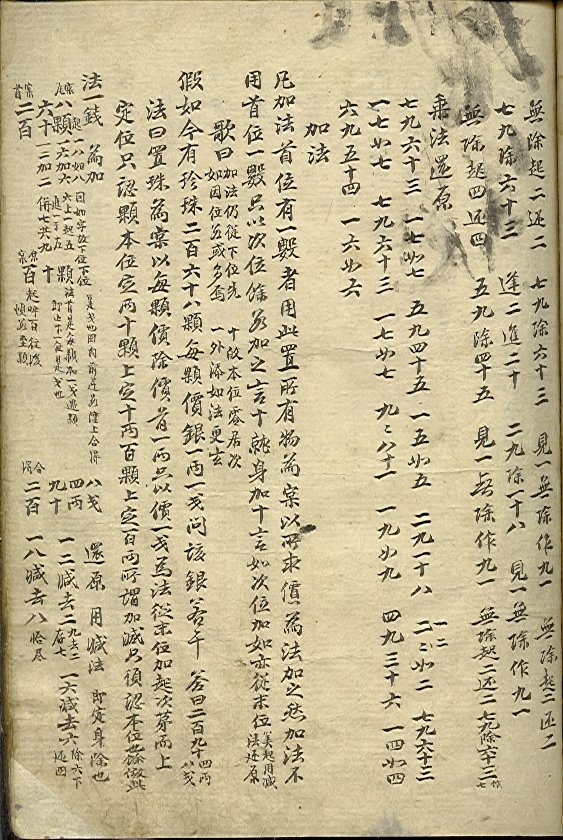 無除起二还二 七九除六十三 見一無除作九一 無除起二还二
七九除六十三 逢二進二十 二九除一十八 見一無除作九一
無除起四还四 五九除四十五 見一無除作九一 無除起二还二 七九除六十三
乘法還原
七九六十三 一七如七 五九四十五 一五如五 二九一十八 一二如二 七九六十三
一七如七 七九六十三 一七如七 九九八十一 一九如九 四九三十六 一四如四
六九五十四 一六如六
加法
凡加法首位有一數者用此置所有物為案以所求價為法加之然加法不
用首位一數只以次位餘數加之言十就身加十言如次位加如亦從末位美起用減法还原
歌曰 加法仍從下位先 如因位數或多焉 十改本位零居次 一外添如法更玄
假如今有珍珠二百六十八顆每顆價銀一両一戔问該銀若干 答曰二百九十四両八戔
法曰置珠為案以每顆價除價首一両只以價一戔為法從末位加起次第而上
定位只認顆本位定両十顆上定十両百顆上定百両所謂加減只須認本位也餘倣此
法一錢 為加
八顆 一八如八 因如字故下位 八戔 還原 用減法 即定身除也
六十 一六加六 四両 一二減去二 一六減去六
二百 一二加二 九十 二百 一八減去八 恰尽